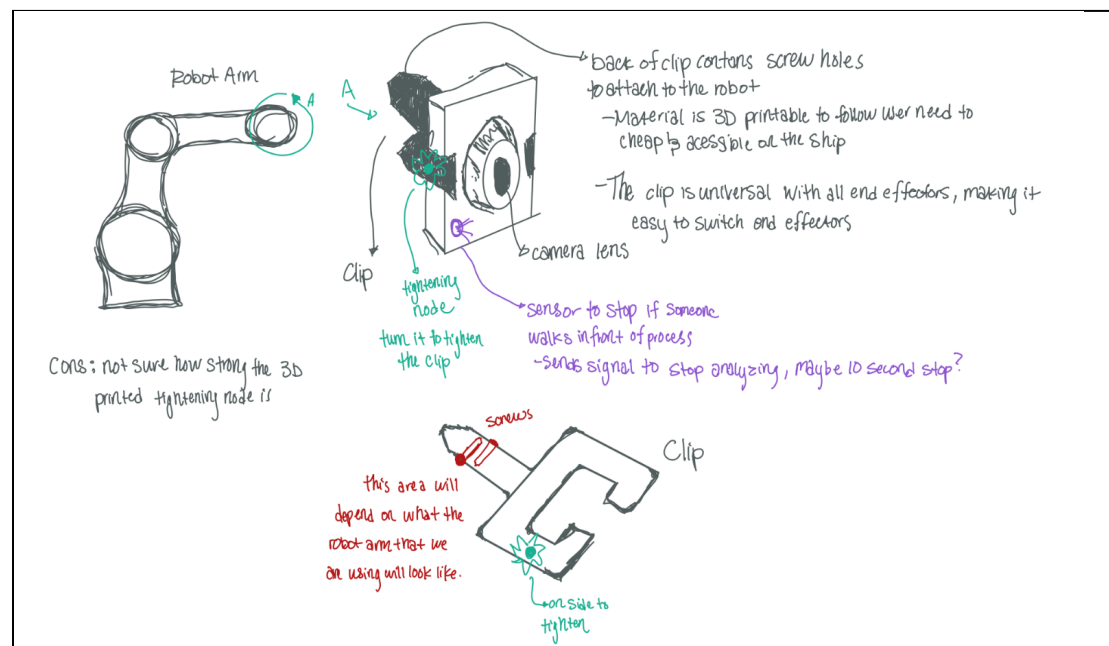 Robot Arm
A
A
back of clip contans screw holes
to attach to the robot
-Material is 3D printable to follow user need to
cheap & acessible on the ship
-The clip is universal with all end effectors, making it
easy to switch end effectors
camera lens
Clip
tightening
node
turn it to tighten
the clip
sensor to stop if someone
walks in front of process
-sends signal to stop analyzing, maybe 10 second stop?
Cons: not sure how strong the 3D
printed tightening node is
screws
Clip
this area will
depend on what the
robot arm that we
are using will look like.
on side to
tighten